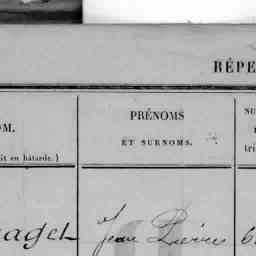 RÉPE
OM.
it en bâtarde.)
PRÉNOMS
ET SURNOMS.
NU
tri
aget Jean Pierre 6